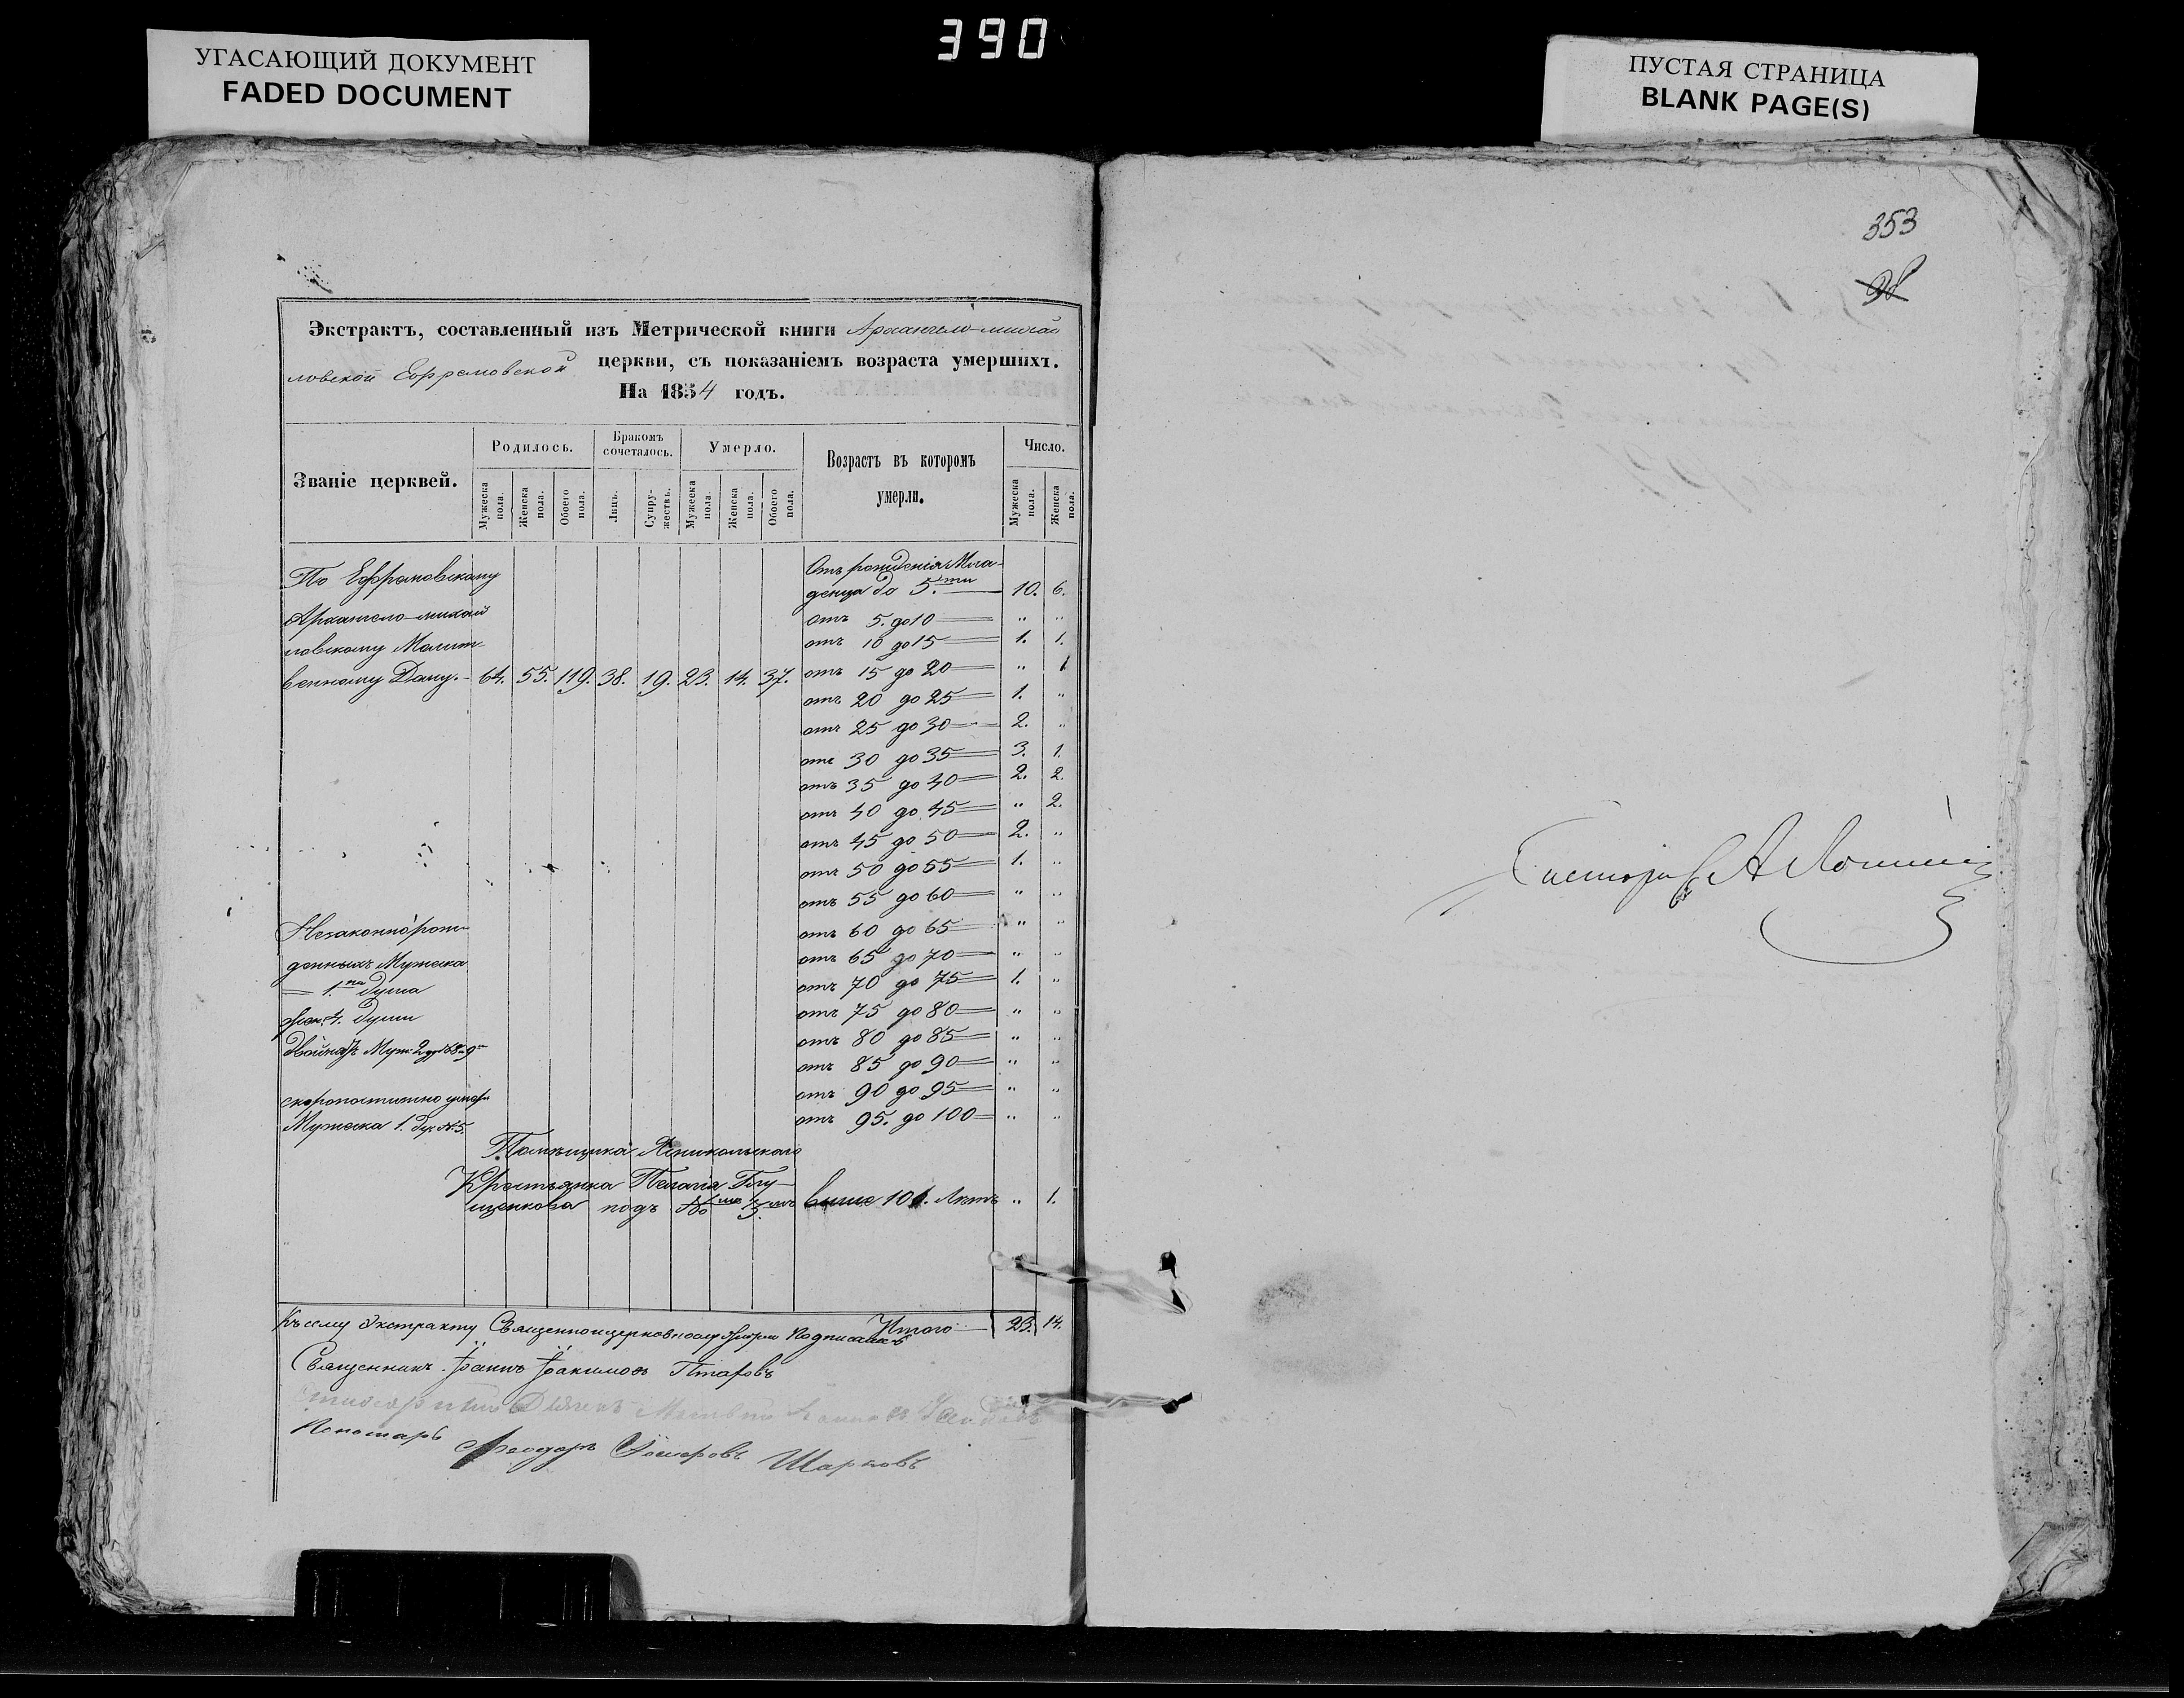 390
УГАСАЮЩИЙ ДОКУМЕНТ
FADED DOCUMENT
ПУСТАЯ СТРАНИЦА
BLANK PAGE(S)
353
Экстрактъ, составленный изъ Метрической книги Архангело-михай
ловской Ефремовской церкви, съ показаніемъ возраста умершихъ.
На 1854 годъ.
Званіе церквей.
Родилось.
Бракомъ сочеталось.
Умерло.
Возрастъ въ котором умерли.
Число.
Мужеска пола.
Женска пола.
Обоего пола.
Лицъ.
Супружествъ.
Мужеска пола.
Женска пола.
Обоего пола.
Мужеска пола.
Женска пола.
По Ефремовскому
Архангело-михай
ловскому Молит-
венному Дому.- 64. 55. 119. 38. 19. 23. 14. 37.
Отъ рожденія Мла-
денца до 5.ти 10. 6.
отъ 5. до 10 " "
отъ 10 до 15 1. 1.
отъ 15 до 20 " 1
отъ 20 до 25 1. "
отъ 25 до 30 2. "
отъ 30 до 35 3. 1.
отъ 35 до 40 2. 2.
отъ 40 до 45 " 2.
отъ 45 до 50 2. "
отъ 50 до 55 1. "
отъ 55 до 60 " "
отъ 60 до 65 " "
отъ 65 до 70 " "
отъ 70 до 75 1. "
отъ 75 до 80 " "
отъ 80 до 85 " "
отъ 85 до 90 " "
отъ 90 до 95 " "
отъ 95. до 100 " "
Незаконнорож
денныхъ Мужеска
1.на душа
жен. 4. души
двойнят Муж. 2
скоропостижно умер
Мужеска 1. душ. №5.
Помѣщика
Крестьянка Пелагія Глу-
щенкова подъ № выше 101. Лѣтъ " 1.
Итого 23. 14.
Къ сему Экстракту Священноцерковнослужители подписались
Священникъ Іоаннъ Іоакимовъ Птаровъ
Пономарь Ѳеодоръ Шарковъ